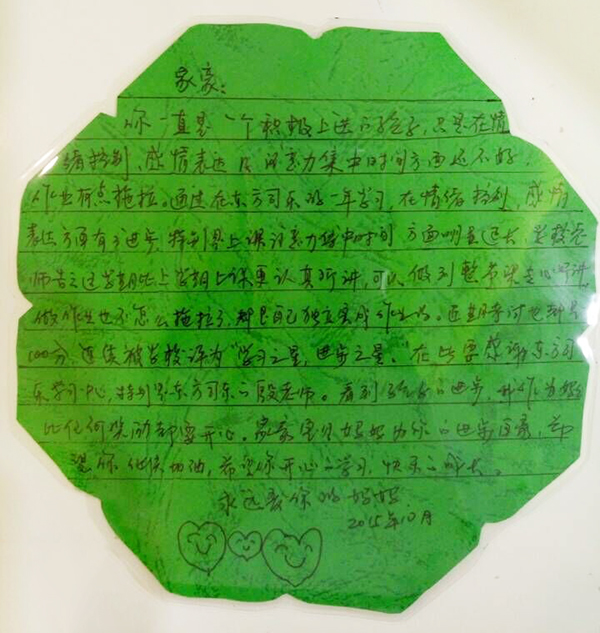 家豪:
你一直是一个积极上进的孩子,只是在情
绪控制,感情表达及注意力集中时间方面还不好,
作业有点拖拉。通过在东方司乐的一年学习,在情绪控制,感情
表达方面有了进步,特别是上课注意力集中时间方面明显延长,学校老
师告之这学期比上学期上课更认真听讲,可以做到整节课专心听讲,
做作业也不怎么拖拉了,都是自己独立完成作业的。连续考试也都是
100分,连续被学校评为"学习之星,进步之星。"在此要感谢东方司
乐学习中心,特别是东方司乐的殷老师。看到孩子的进步,我作为妈妈
比任何奖励都要开心。家豪宝贝妈妈为你的进步自豪,希
望你继续加油,希望你开心的学习,快乐的成长。
永远爱你的妈妈
2015年10月